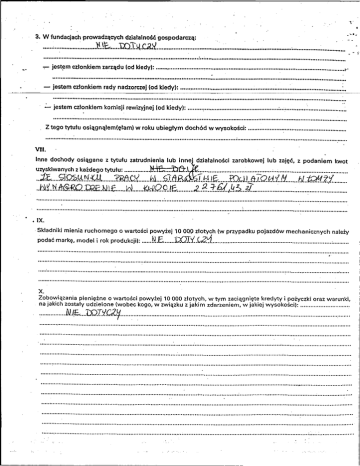 3. W fundacjach prowadzących działalność gospodarczą:
NIE DOTYCZY
— jestem członkiem zarządu (od kiedy):
— jestem członkiem rady nadzorczej (od kiedy):
— jestem członkiem komisji rewizyjnej (od kiedy):
Z tego tytułu osiągnąłem(ęłam) w roku ubiegłym dochód w wysokości:
VIII.
Inne dochody osiągane z tytułu zatrudnienia lub innej działalności zarobkowej lub zajęć, z podaniem kwot
uzyskiwanych z każdego tytułu:
ZE STOSUNKU PRACY W STAROSTWIE POWIATOWYM W ŁOMŻY
WYNAGRODZENIE W KWOCIE 22761,43 zł
IX.
Składniki mienia ruchomego o wartości powyżej 10 000 złotych (w przypadku pojazdów mechanicznych należy
podać markę, model i rok produkcji): NIE DOTYCZY
X.
Zobowiązania pieniężne o wartości powyżej 10 000 złotych, w tym zaciągnięte kredyty i pożyczki oraz warunki,
na jakich zostały udzielone (wobec kogo, w związku z jakim zdarzeniem, w jakiej wysokości):
NIE DOTYCZY